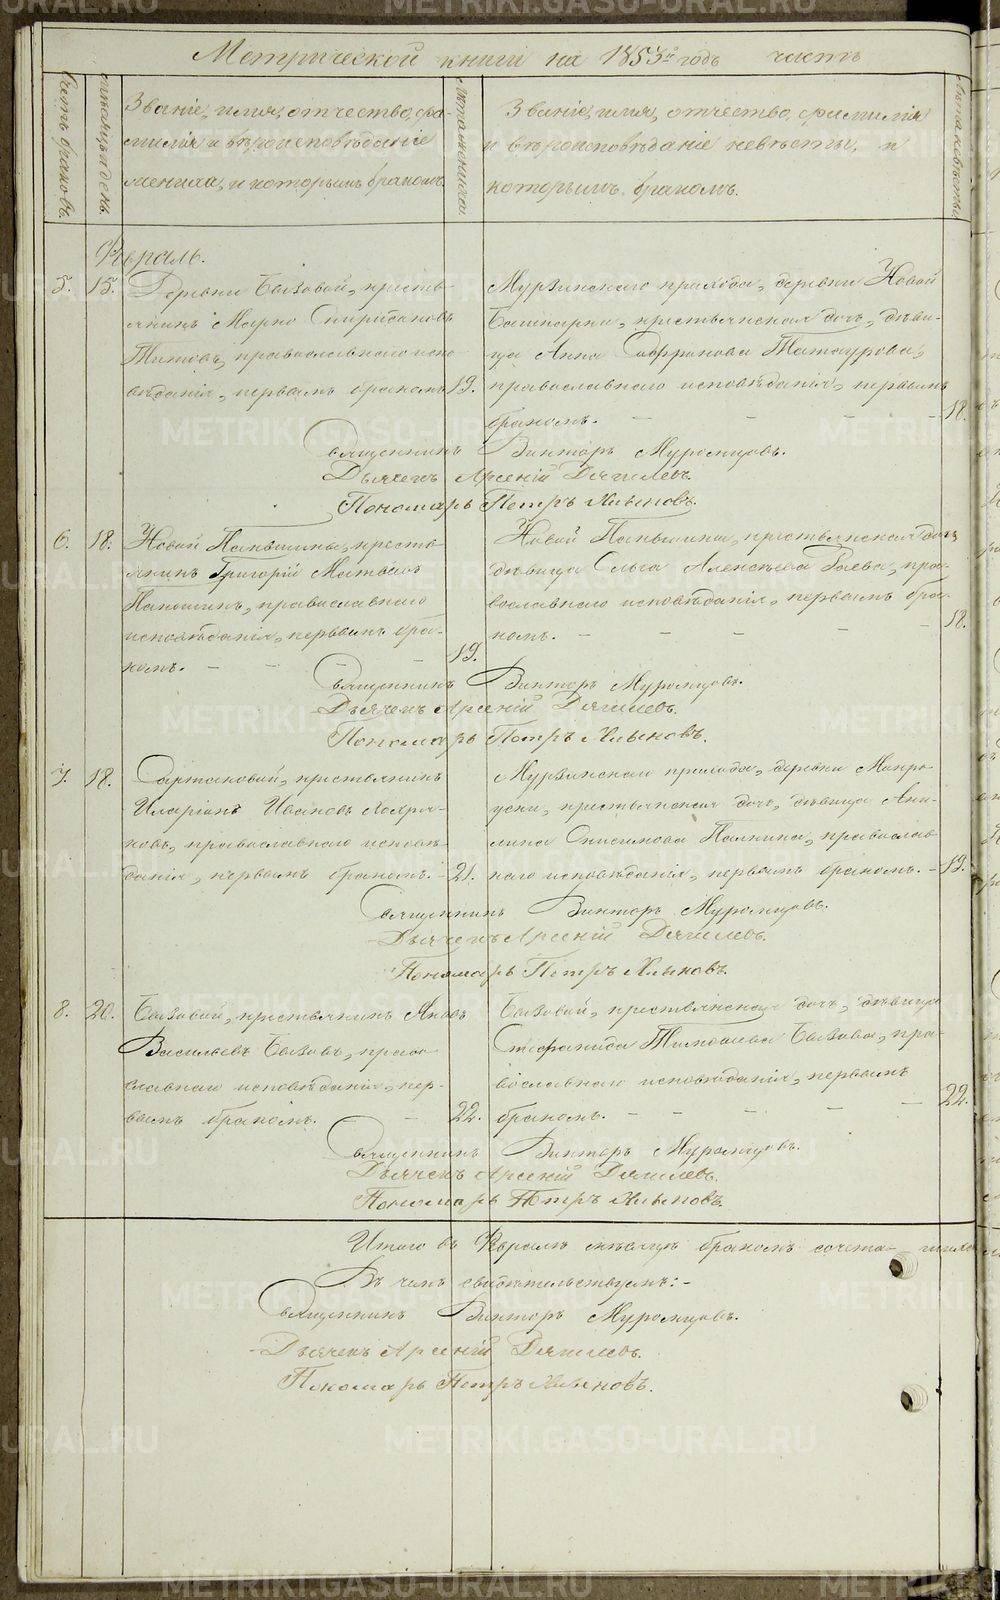 Метрической книги на 1853й годъ часть
Счетъ браковъ.
Мѣсяцъ и день.
Званіе, имя, отчество, фа-
милія и вѣроисповѣданіе
жениха, и которымъ бракомъ.
Лѣта жениха
Званіе, имя, отчество, фамилія
и вѣроисповѣданіе невѣсты, и
которымъ бракомъ.
Лѣта невѣсты
Февраль.
5. 15. Деревни Бызовой, кресть-
янинъ Марко Спиридоновъ
Титовъ, православнаго испо-
вѣданія, первымъ бракомъ 19.
Мурзинскаго прихода, деревни Новой
Башкарки, крестьянская дочь, дѣви-
ца Анна Сафронова Татаурова,
православнаго исповѣданія, первымъ
бракомъ. - - - - 18.
Священникъ Викторъ Муромцовъ.
Дьячекъ Арсеній Дягилевъ.
Пономарь Петръ Хлыновъ.
6. 18. Новой Паньшины, кресть-
янинъ Григорій Матвѣевъ
Паньшинъ, православнаго
исповѣданія, первымъ бра-
комъ. - - - - 19.
Новой Паньшины, крестьянская дочь
дѣвица Ольга Алексѣева Раева, пра-
вославнаго исповѣданія, первымъ бра-
комъ. - - - - - 18.
Священникъ Викторъ Муромцовъ.
Дьячекъ Арсеній Дягилевъ.
Пономарь Петръ Хлыновъ.
7. 18. Сартаковой, крестьянинъ
Иларіонъ Ивановъ
православнаго исповѣ-
данія, первымъ бракомъ. - 21.
Мурзинскаго прихода, деревни Мокро-
уски, крестьянская дочь, дѣвица Аки-
лина Онисимова Палкина, православ-
наго исповѣданія, первымъ бракомъ. - 19.
Священникъ Викторъ Муромцовъ.
Дьячекъ Арсеній Дягилевъ.
Пономарь Петръ Хлыновъ.
8. 20. Бызовой, крестьянинъ Яковъ
Васильевъ Бызовъ, право-
славнаго исповѣданія, пер-
вымъ бракомъ. - - 22.
Бызовой, крестьянская дочь, дѣвица
Стефанида Тимофиева Бызова, пра-
вославнаго исповѣданія, первымъ
бракомъ. - - - - - 22.
Священникъ Викторъ Муромцовъ.
Дьячекъ Арсеній Дягилевъ.
Пономарь Петръ Хлыновъ.
Итого въ Февралѣ мѣсяцѣ бракомъ сочета-
Въ чемъ свидѣтельствуемъ: -
Священникъ Викторъ Муромцовъ.
Дьячекъ Арсеній Дягилевъ.
Пономарь Петръ Хлыновъ.
METRIKI.GASO-URAL.RU